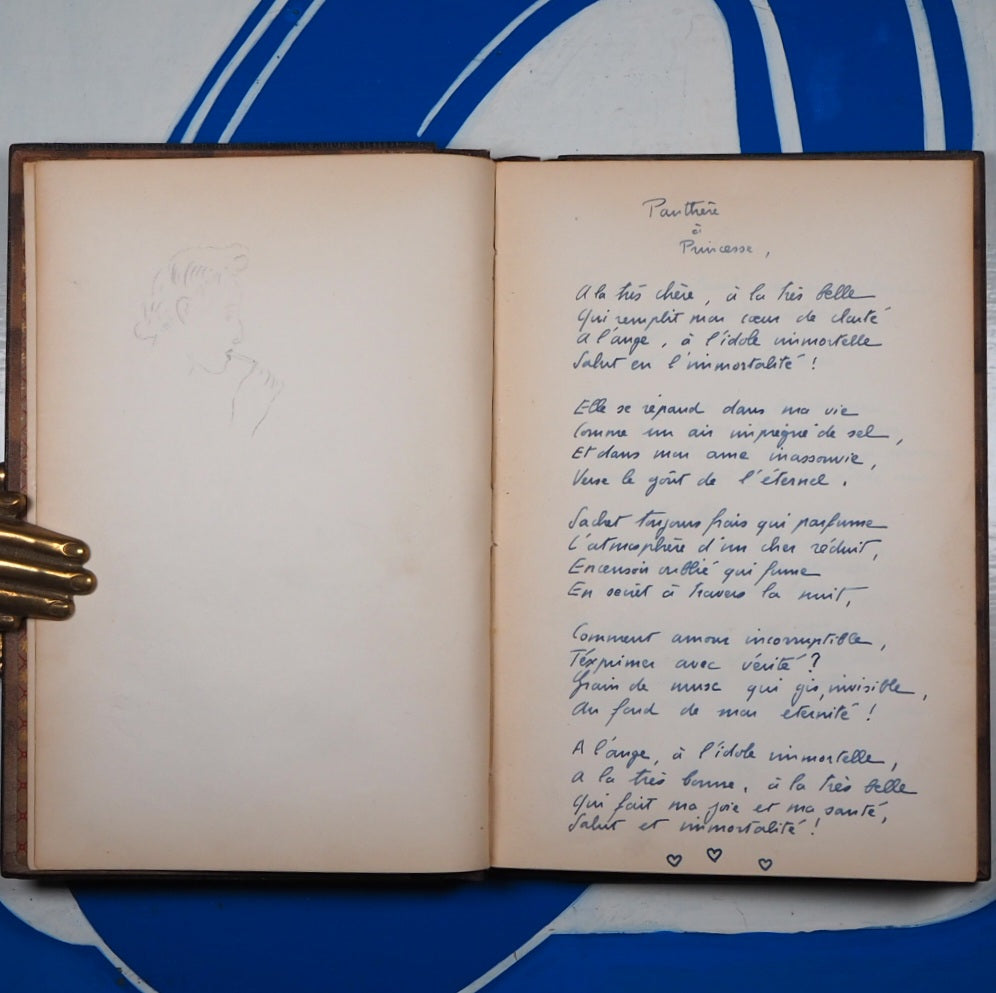 Panthère
à
Princesse,
A la très chère, à la très belle
Qui remplit mon cœur de clarté
A l'ange, à l'idole immortelle
Salut en l'immortalité !
Elle se répand dans ma vie
Comme un air imprégné de sel,
Et dans mon ame inassouvie,
Verse le goût de l'éternel.
Sachet toujours frais qui parfume
L'atmosphère d'un cher réduit,
Encensoir oublié qui fume
En secret à travers la nuit,
Comment amour incorruptible,
T'exprimer avec vérité ?
Grain de musc qui gis, invisible,
Au fond de mon eternité !
A l'ange, à l'idole immortelle,
A la très bonne, à la très belle
Qui fait ma joie et ma santé,
Salut et immortalité !